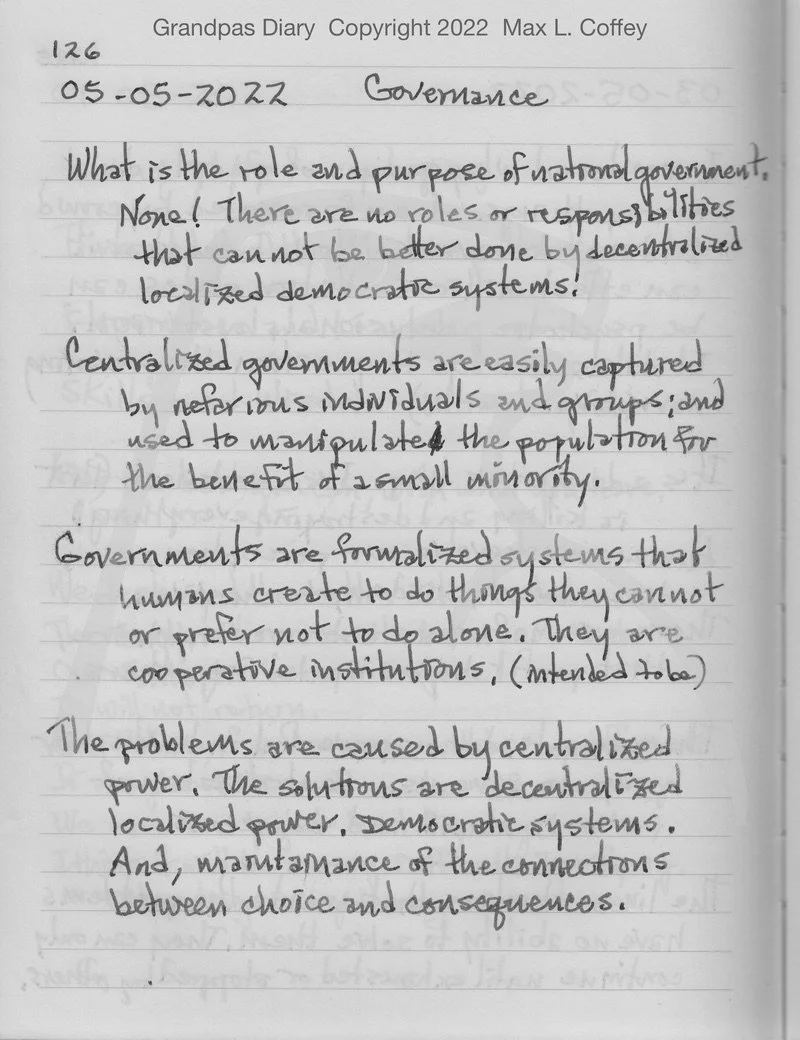 Grandpas Diary  Copyright 2022  Max L. Coffey
126
05-05-2022 Governance
What is the role and purpose of national government.
None! There are no roles or responsibilities
that cannot be better done by decentralized
localized democratic systems!
Centralized governments are easily captured
by nefarious individuals and groups; and
used to manipulate the population for
the benefit of a small minority.
Governments are formalized systems that
humans create to do things they cannot
or prefer not to do alone. They are
cooperative institutions, (intended to be)
The problems are caused by centralized
power. The solutions are decentralized
localized power. Democratic systems.
And, maintainance of the connections
between choice and consequences.